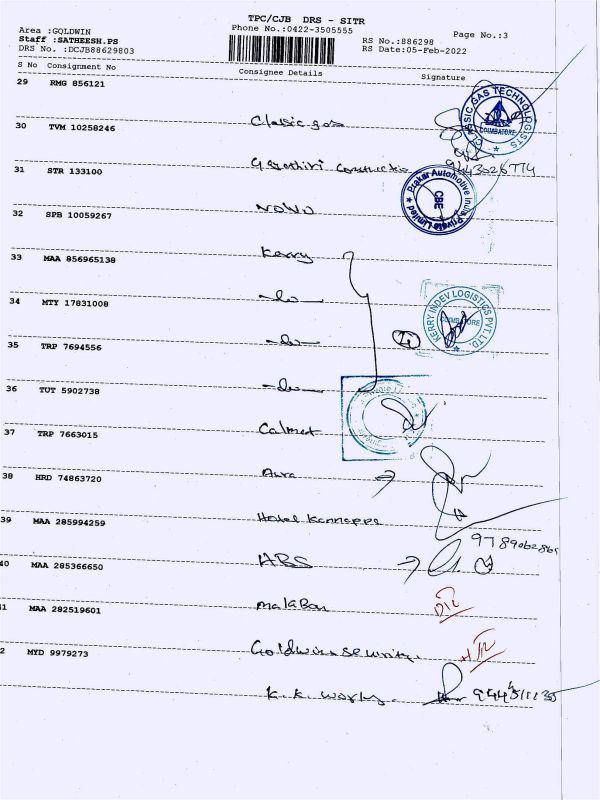 TPC/CJB DRS - SITR
Area :GQLDWIN
Phone No.:0422-3505555
Page No.:3
Staff :SATHEESH.PS
RS No.:886298
DRS No. :DCJB88629803
RS Date:05-Feb-2022
S No Consignment No Consignee Details Signature
29 RMG 856121
Classic gas
CLASSIC GAS TECHNOLOGISTS COIMBATORE
30 TVM 10258246
Gayathiri Constructio
31 STR 133100
Prakar Automotive India Private Limited CBE
NOVO
32 SPB 10059267
Kerry
33 MAA 856965138
-do-
34 MTY 17831008
KERRY INDEV LOGISTICS PVT. LTD. COIMBATORE
-do-
4
35 TRP 7694556
-do-
36 TUT 5902738
Calmet
37 TRP 7663015
Aura
38 HRD 74863720
Hotel Kannappa
39 MAA 285994259
ABS
40 MAA 285366650
Malabar
41 MAA 282519601
Goldwin security.
42 MYD 9979273
K.K. works.